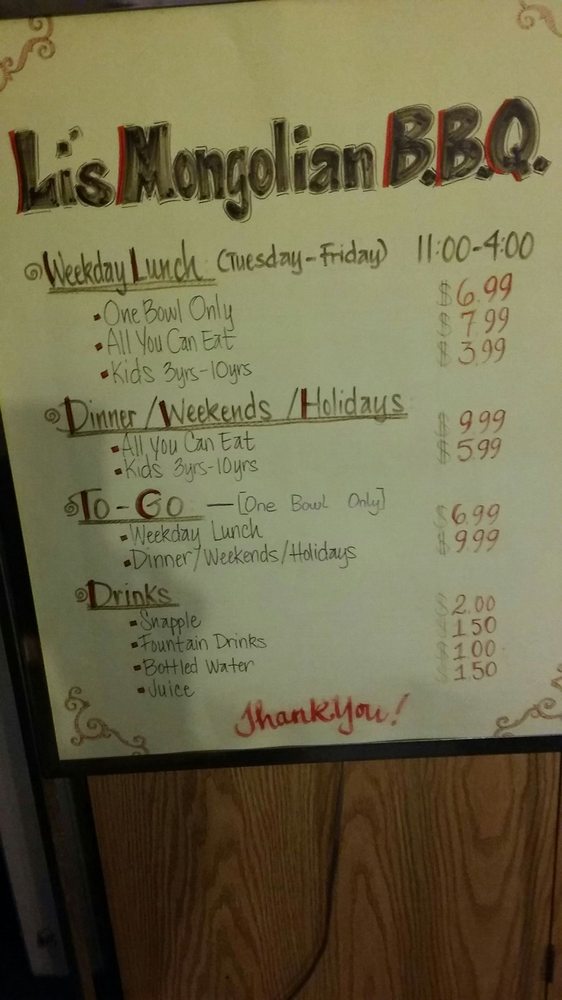 Li's Mongolian B.B.Q.
Weekday Lunch (Tuesday-Friday) 11:00-4:00
One Bowl Only $6.99
All You Can Eat $7.99
Kids 3yrs-10yrs $3.99
Dinner/Weekends/Holidays
All You Can Eat $9.99
Kids 3yrs-10yrs $5.99
To-Go —[One Bowl Only]
Weekday Lunch $6.99
Dinner/Weekends/Holidays $9.99
Drinks
Snapple $2.00
Fountain Drinks $1.50
Bottled Water $1.00
Juice $1.50
Thank You!